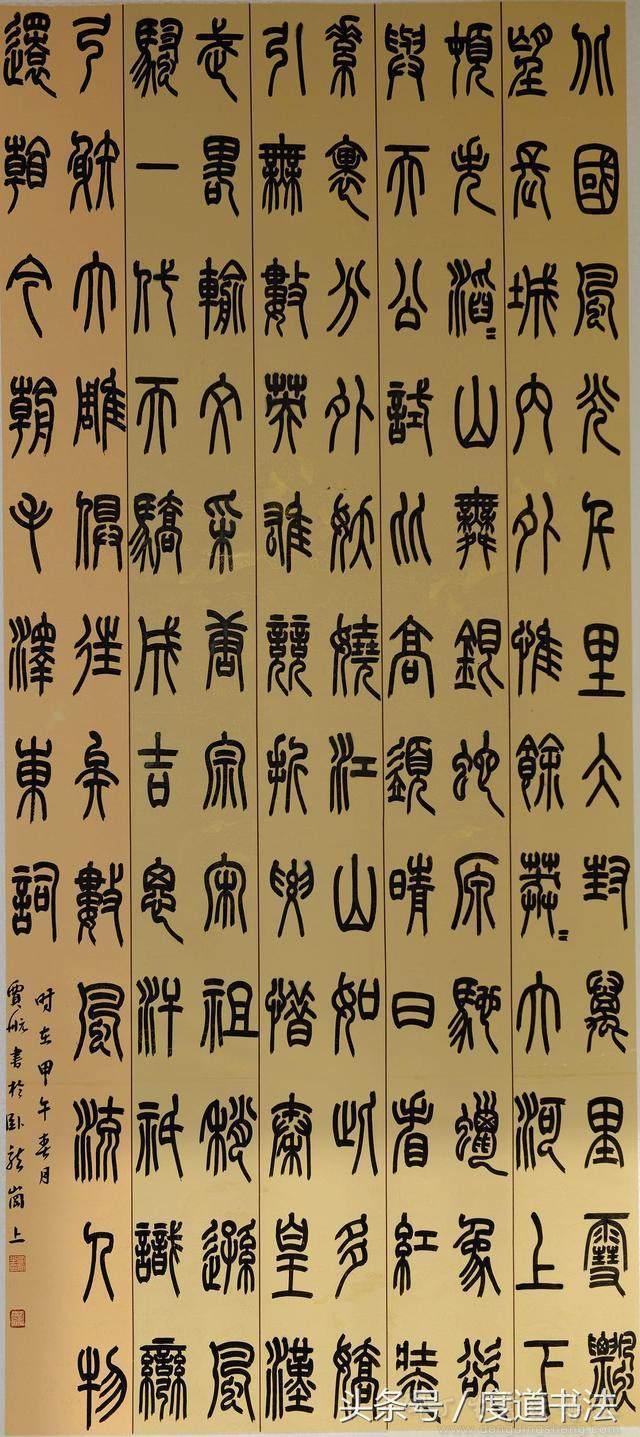 北國風光千里冰封萬里雪飄
望長城內外惟餘莽〻大河上下
頓失滔〻山舞銀蛇原馳蠟象欲
與天公試比高須晴日看紅裝
素裹分外妖嬈江山如此多嬌
引無數英雄競折腰惜秦皇漢
武略輸文采唐宗宋祖稍遜風
騷一代天驕成吉思汗祇識彎
弓射大雕俱往矣數風流人物
還看今朝毛澤東詞
時在甲午春月
賈航書於臥龍崗上
头条号 / 度道书法